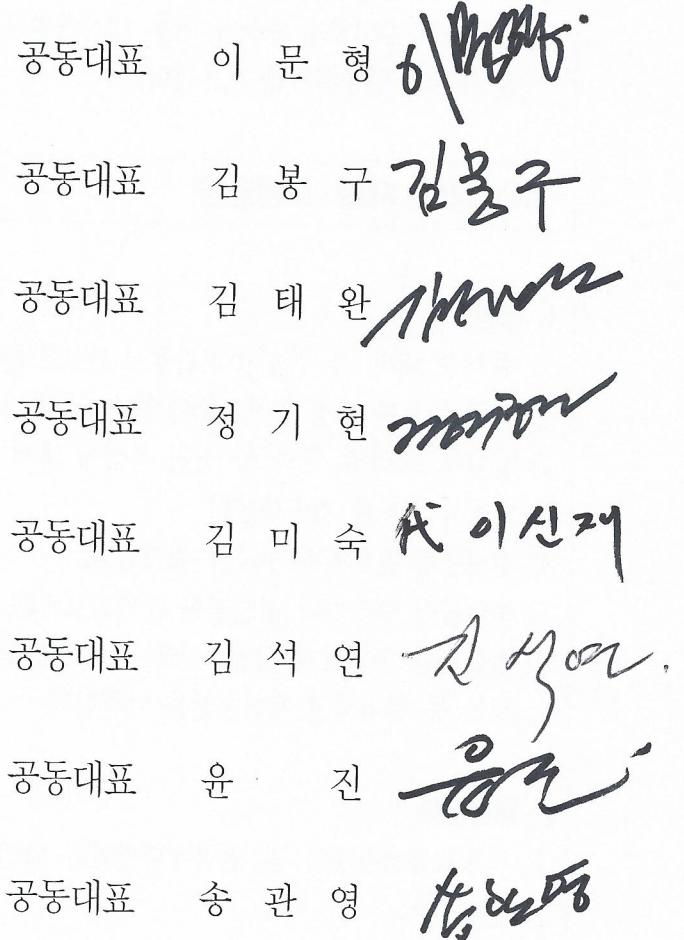 공동대표 이 문 형 이문형
공동대표 김 봉 구 김봉구
공동대표 김 태 완
공동대표 정 기 현
공동대표 김 미 숙 代 이신재
공동대표 김 석 연 김석연
공동대표 윤 진 윤진
공동대표 송 관 영